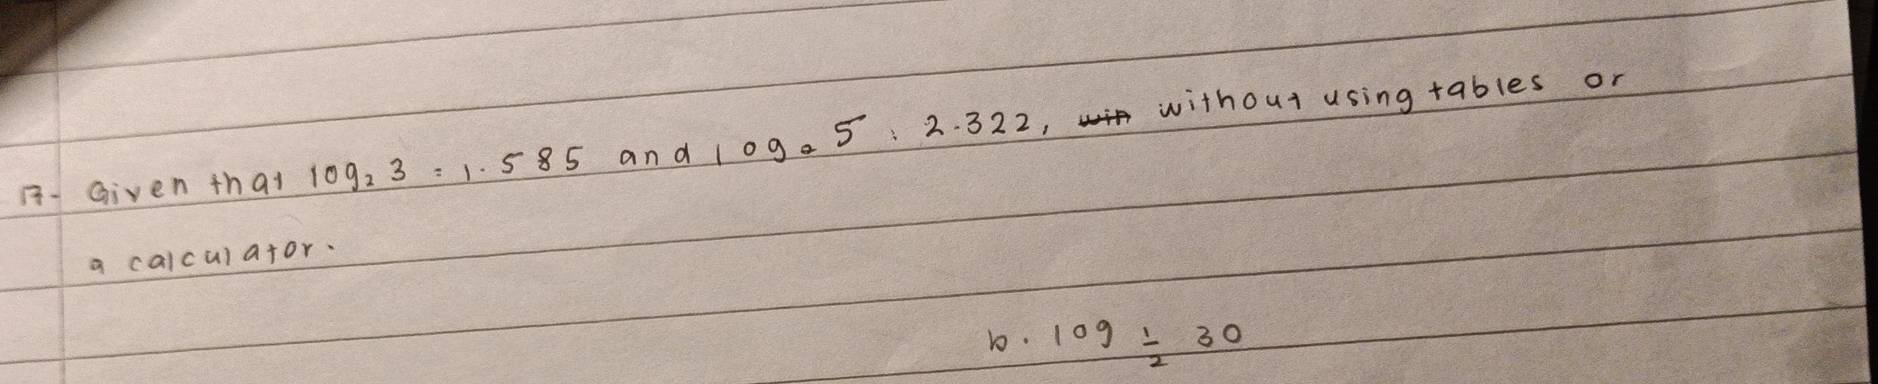 17. Given that log₂ 3 = 1.585 and log₂ 5 = 2.322, win without using tables or
a calculator.
b. log ½ 30